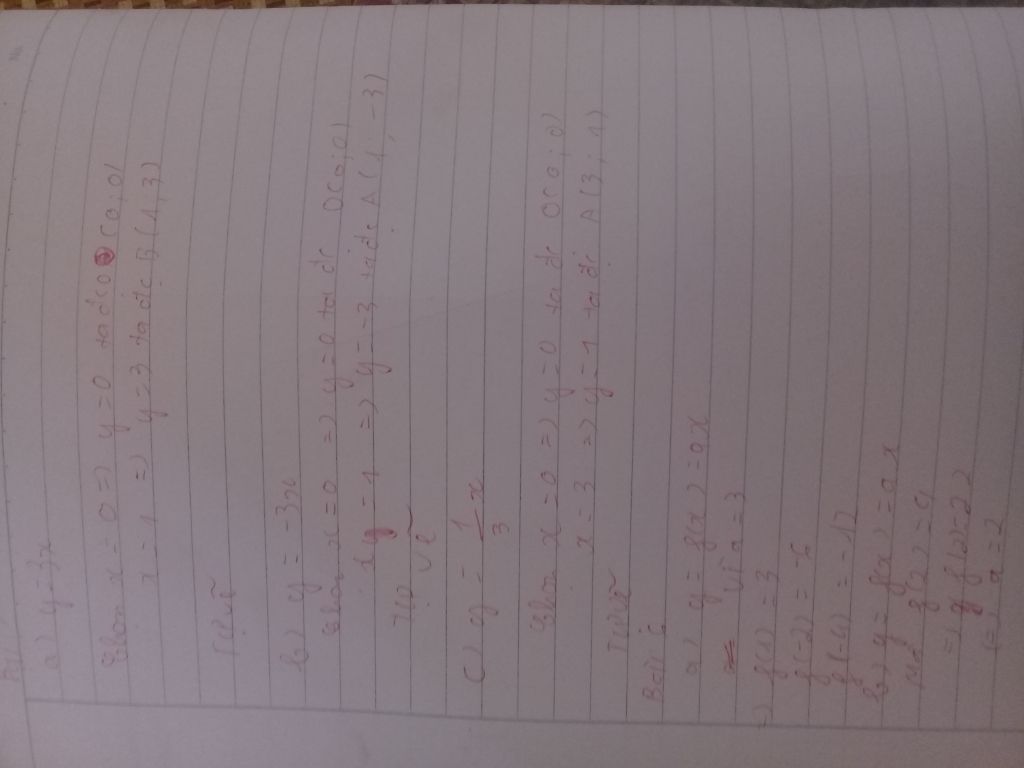 a) y = 3x
Chọn x = 0 => y = 0 ta đc O (0,0)
x = 1 => y = 3 ta đc B (1, 3)
Tự vẽ
b) y = -3x
Chọn x = 0 => y = 0 ta đc O(0,0)
= 1 => y = -3 ta đc A (1, -3)
Tự vẽ
c) y = 1/3 x
Chọn x = 0 => y = 0 ta đc O(0;0)
x = 3 => y = 1 ta đc A (3, 1)
Tự vẽ
Bài 6
a) y = f(x) = ax
Vì a = 3
=> f(1) = 3
f(-2) = -6
f(-4) = -12
b) y = f(x) = ax
Mà f(2) = 4
(=) a = 2